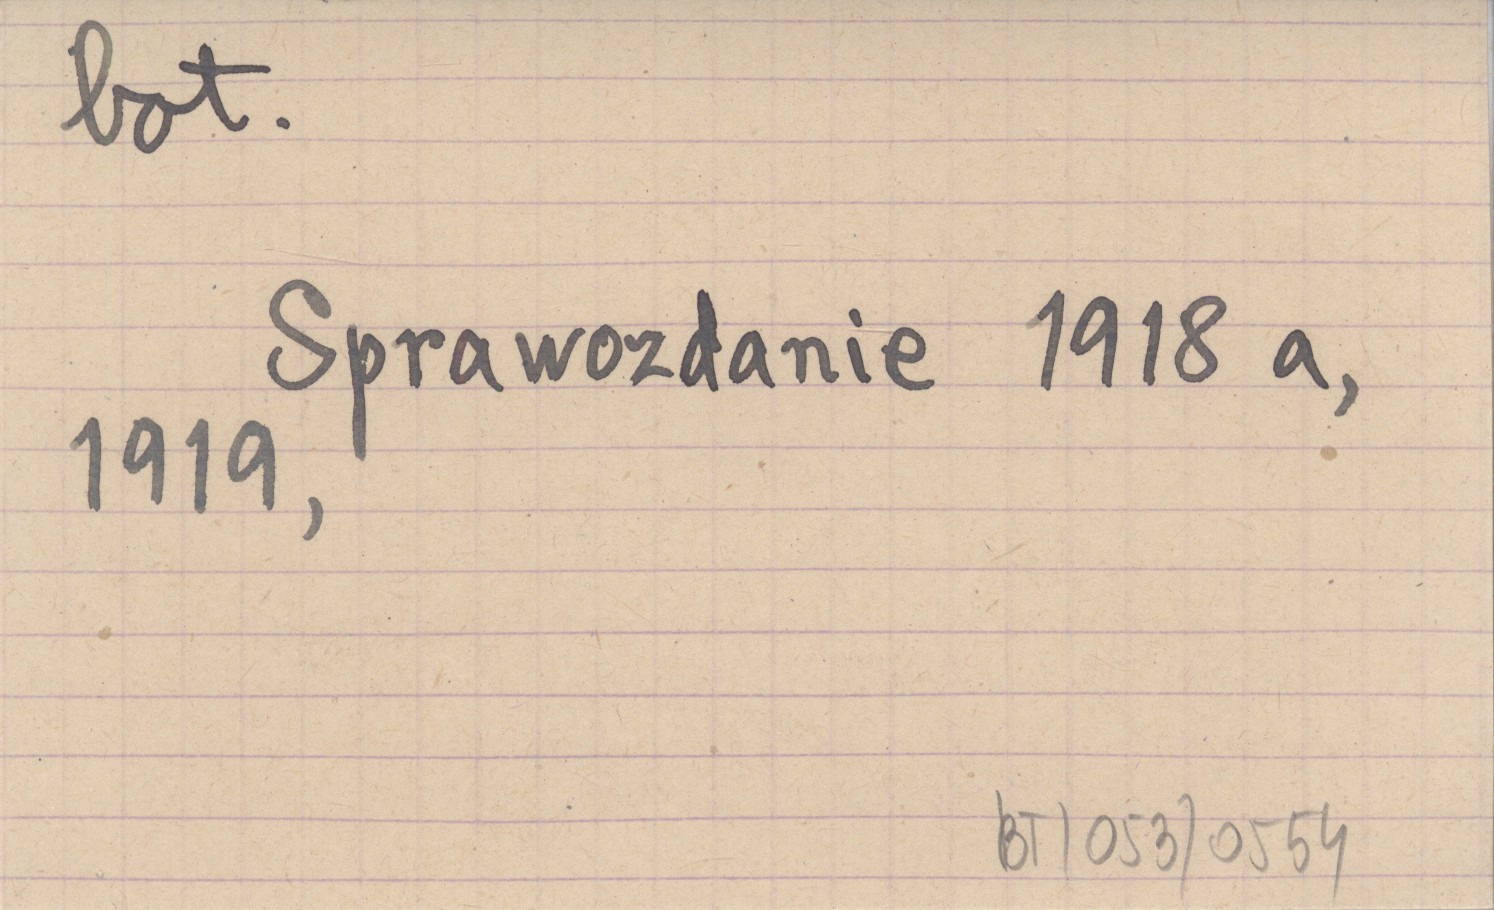 bot.
Sprawozdanie 1918 a,
1919,
BT/053/0554